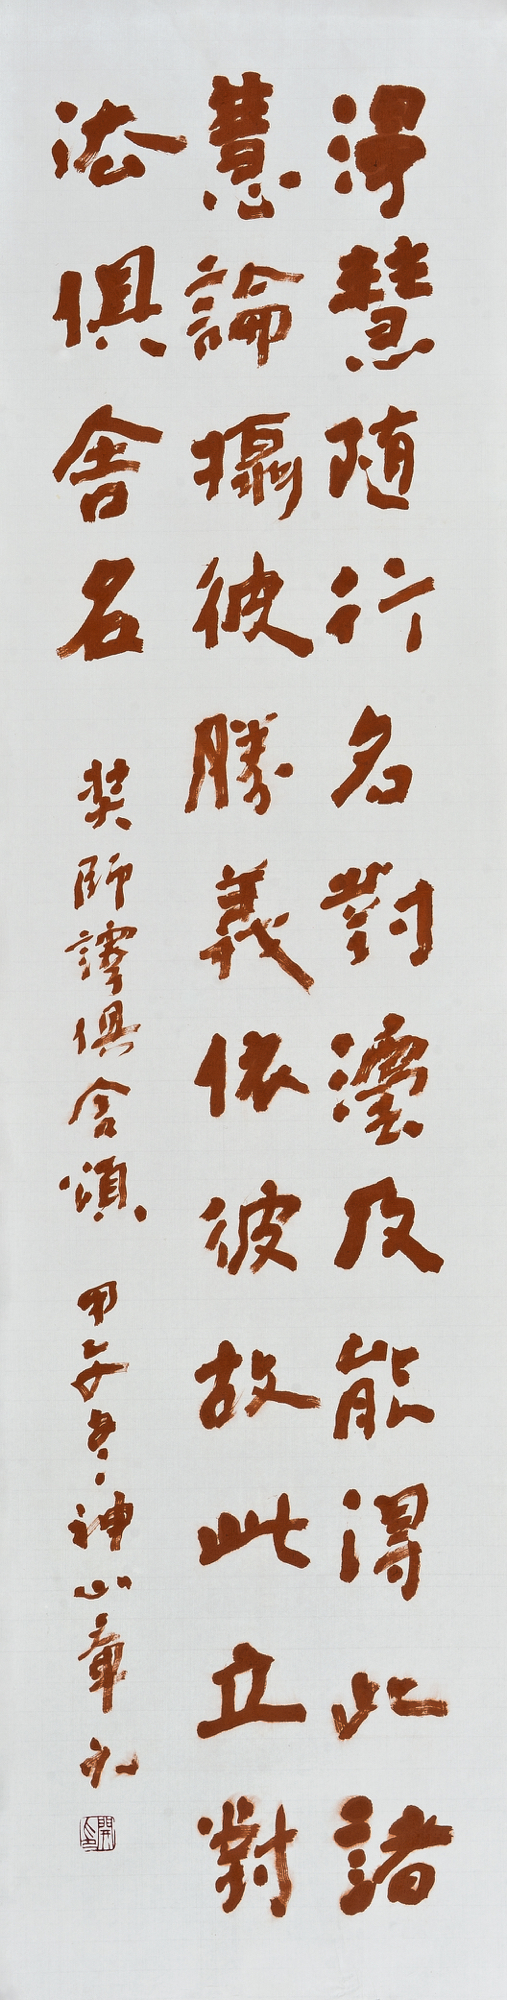 浄慧随行名對灋及能得此諸
慧論攝彼勝義依彼故此立對
法俱舍名 奘師譯俱舍頌 甲午冬神山